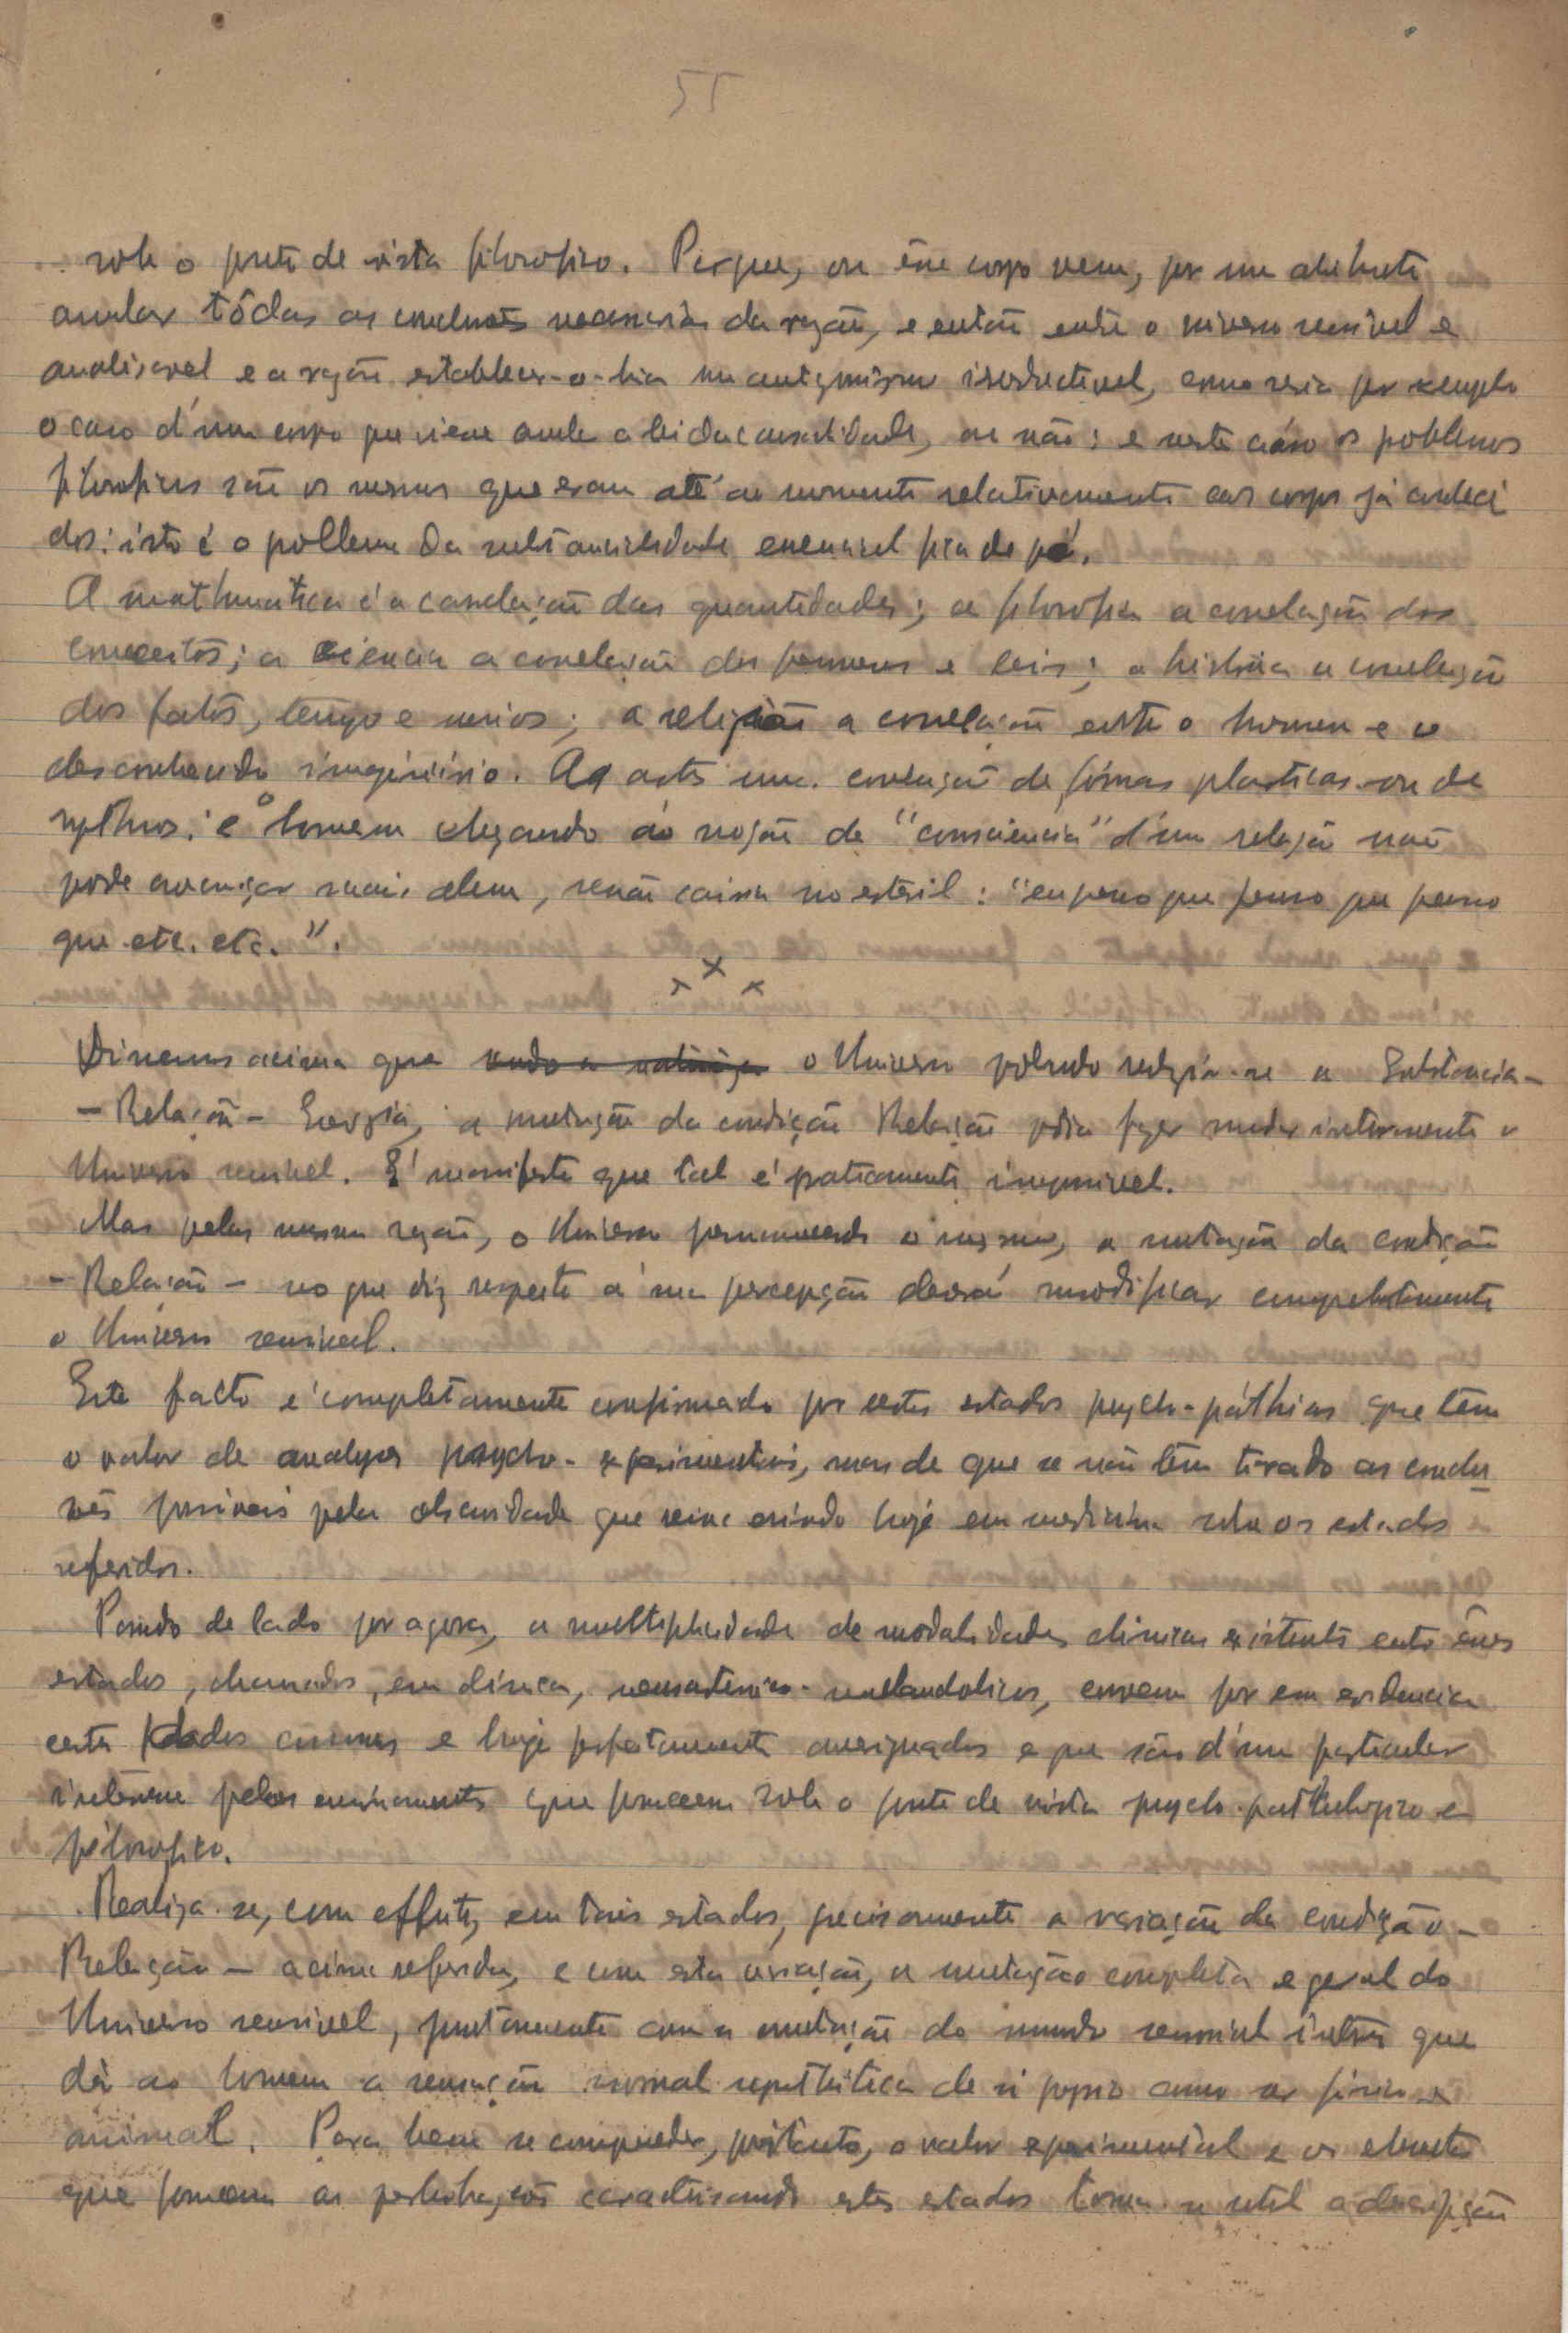 55
sob o ponto de vista filosofico. Porque, ou êsse corpo vem, por um
anular tôdas as conclusões necessarias da razão, e então entre o universo sensivel e
analisavel e a razão estabelecer-se-hia um antagonismo irreductivel, como seria por exemplo
o caso d'um corpo que viesse anular a lei da causalidade, ou não; e neste caso os problemas
filosoficos são os mesmos que eram até ao momento relativamente aos corpos já conheci
dos: isto é o problema da substancialidade essencial fica de pé.
A mathematica é a correlação das quantidades; a filosofia a correlação dos
conceitos; a sciencia a correlação dos fenomenos e leis; a história a correlação
dos fatos, tempo e meios; a religião a correlação entre o homem e o
desconhecido imaginário. As artes uma correlação de fórmas plasticas ou de
rythmos: e o homem chegando á noção de "consciencia" d'uma relação não
pode avançar mais alem, senão cairia no estéril: "eu penso que penso que penso
que etc. etc.".
x x x
Dissemos acima que o Universo podendo reduzir-se a Substancia-
-Relação- Energia, a mutação da condição Relação podia fazer mudar inteiramente o
Universo sensivel. E' manifesto que tal é praticamente impossivel.
Mas pela mesma razão, o Universo permanecendo o mesmo, a mutação da condição
-Relação- no que diz respeito á sua percepção deverá modificar completamente
o Universo sensivel.
Este facto é completamente confirmado por certos estados psycho-páthicos que têm
o valor de analyses psycho-experimentais, mas de que se não têm tirado as conclu
sões possiveis pela obscuridade que reina ainda hoje em medicina sobre os estados
referidos.
Pondo de lado por agora, a multiplicidade de modalidades clinicas existentes entre êsses
estados, chamados, em clinica, neurastenico-melancolicos, convem pôr em evidencia
certos dados comuns e hoje perfeitamente averiguados e que são d'um particular
interesse pelos ensinamentos que fornecem sob o ponto de vista psycho-pathologico e
filosofico.
Realiza-se, com effeito, em tais estados, precisamente a variação da condição-
Relação- acima referida, e com esta variação, a mutação completa e geral do
Universo sensivel, juntamente com a mutação do mundo sensorial interno que
dá ao homem a sensação normal synthética de si proprio como ser fisico e
animal. Para bem se compreender, portanto, o valor experimental e os elementos
que fornecem as perturbações caracterisando estes estados torna-se util a descripção